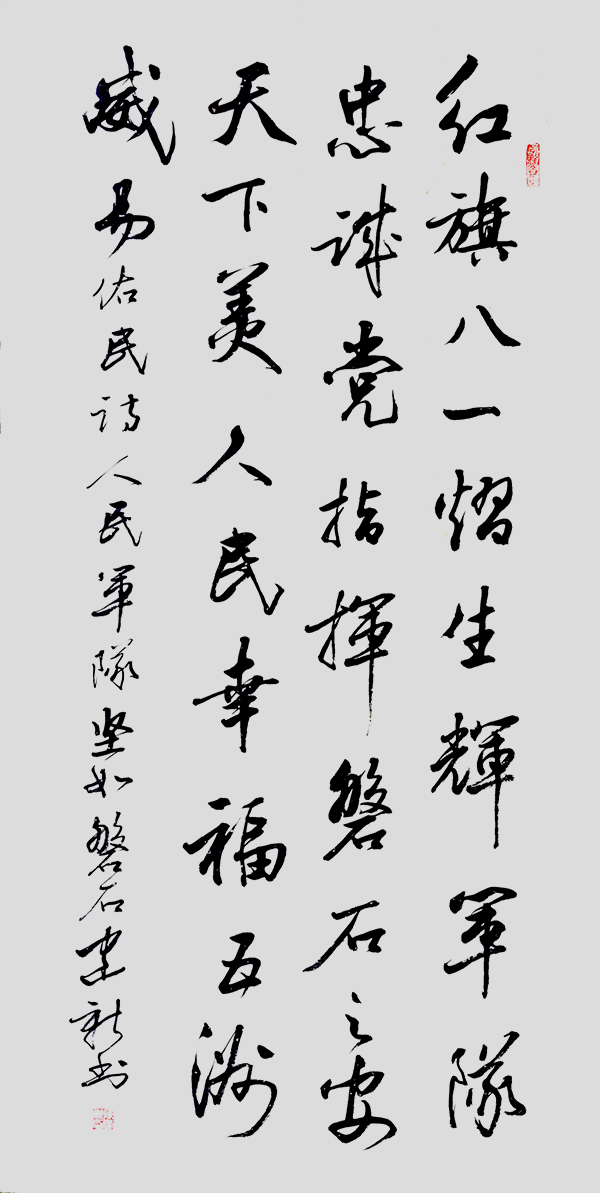 红旗八一熠生輝軍隊
忠诚党指揮磐石之安
天下美人民幸福五洲
威易佑民诗人民軍隊坚如磐石建新书